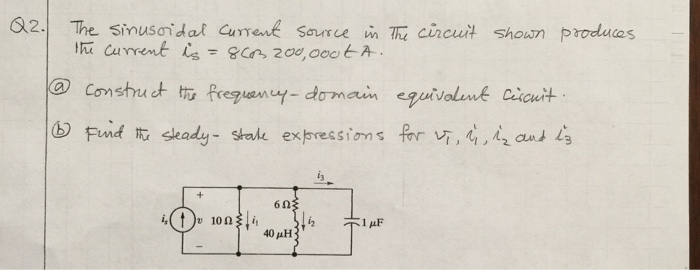 Q2. The sinusoidal current source in the circuit shown produces
the current is = 8 cos 200,000t A.
(a) Construct the frequency-domain equivalent circuit.
(b) Find the steady-state expressions for v, i1, i2 and i3
i3
+
6 Ω
is v 10 Ω i1 i2 1 μF
40 μH
−